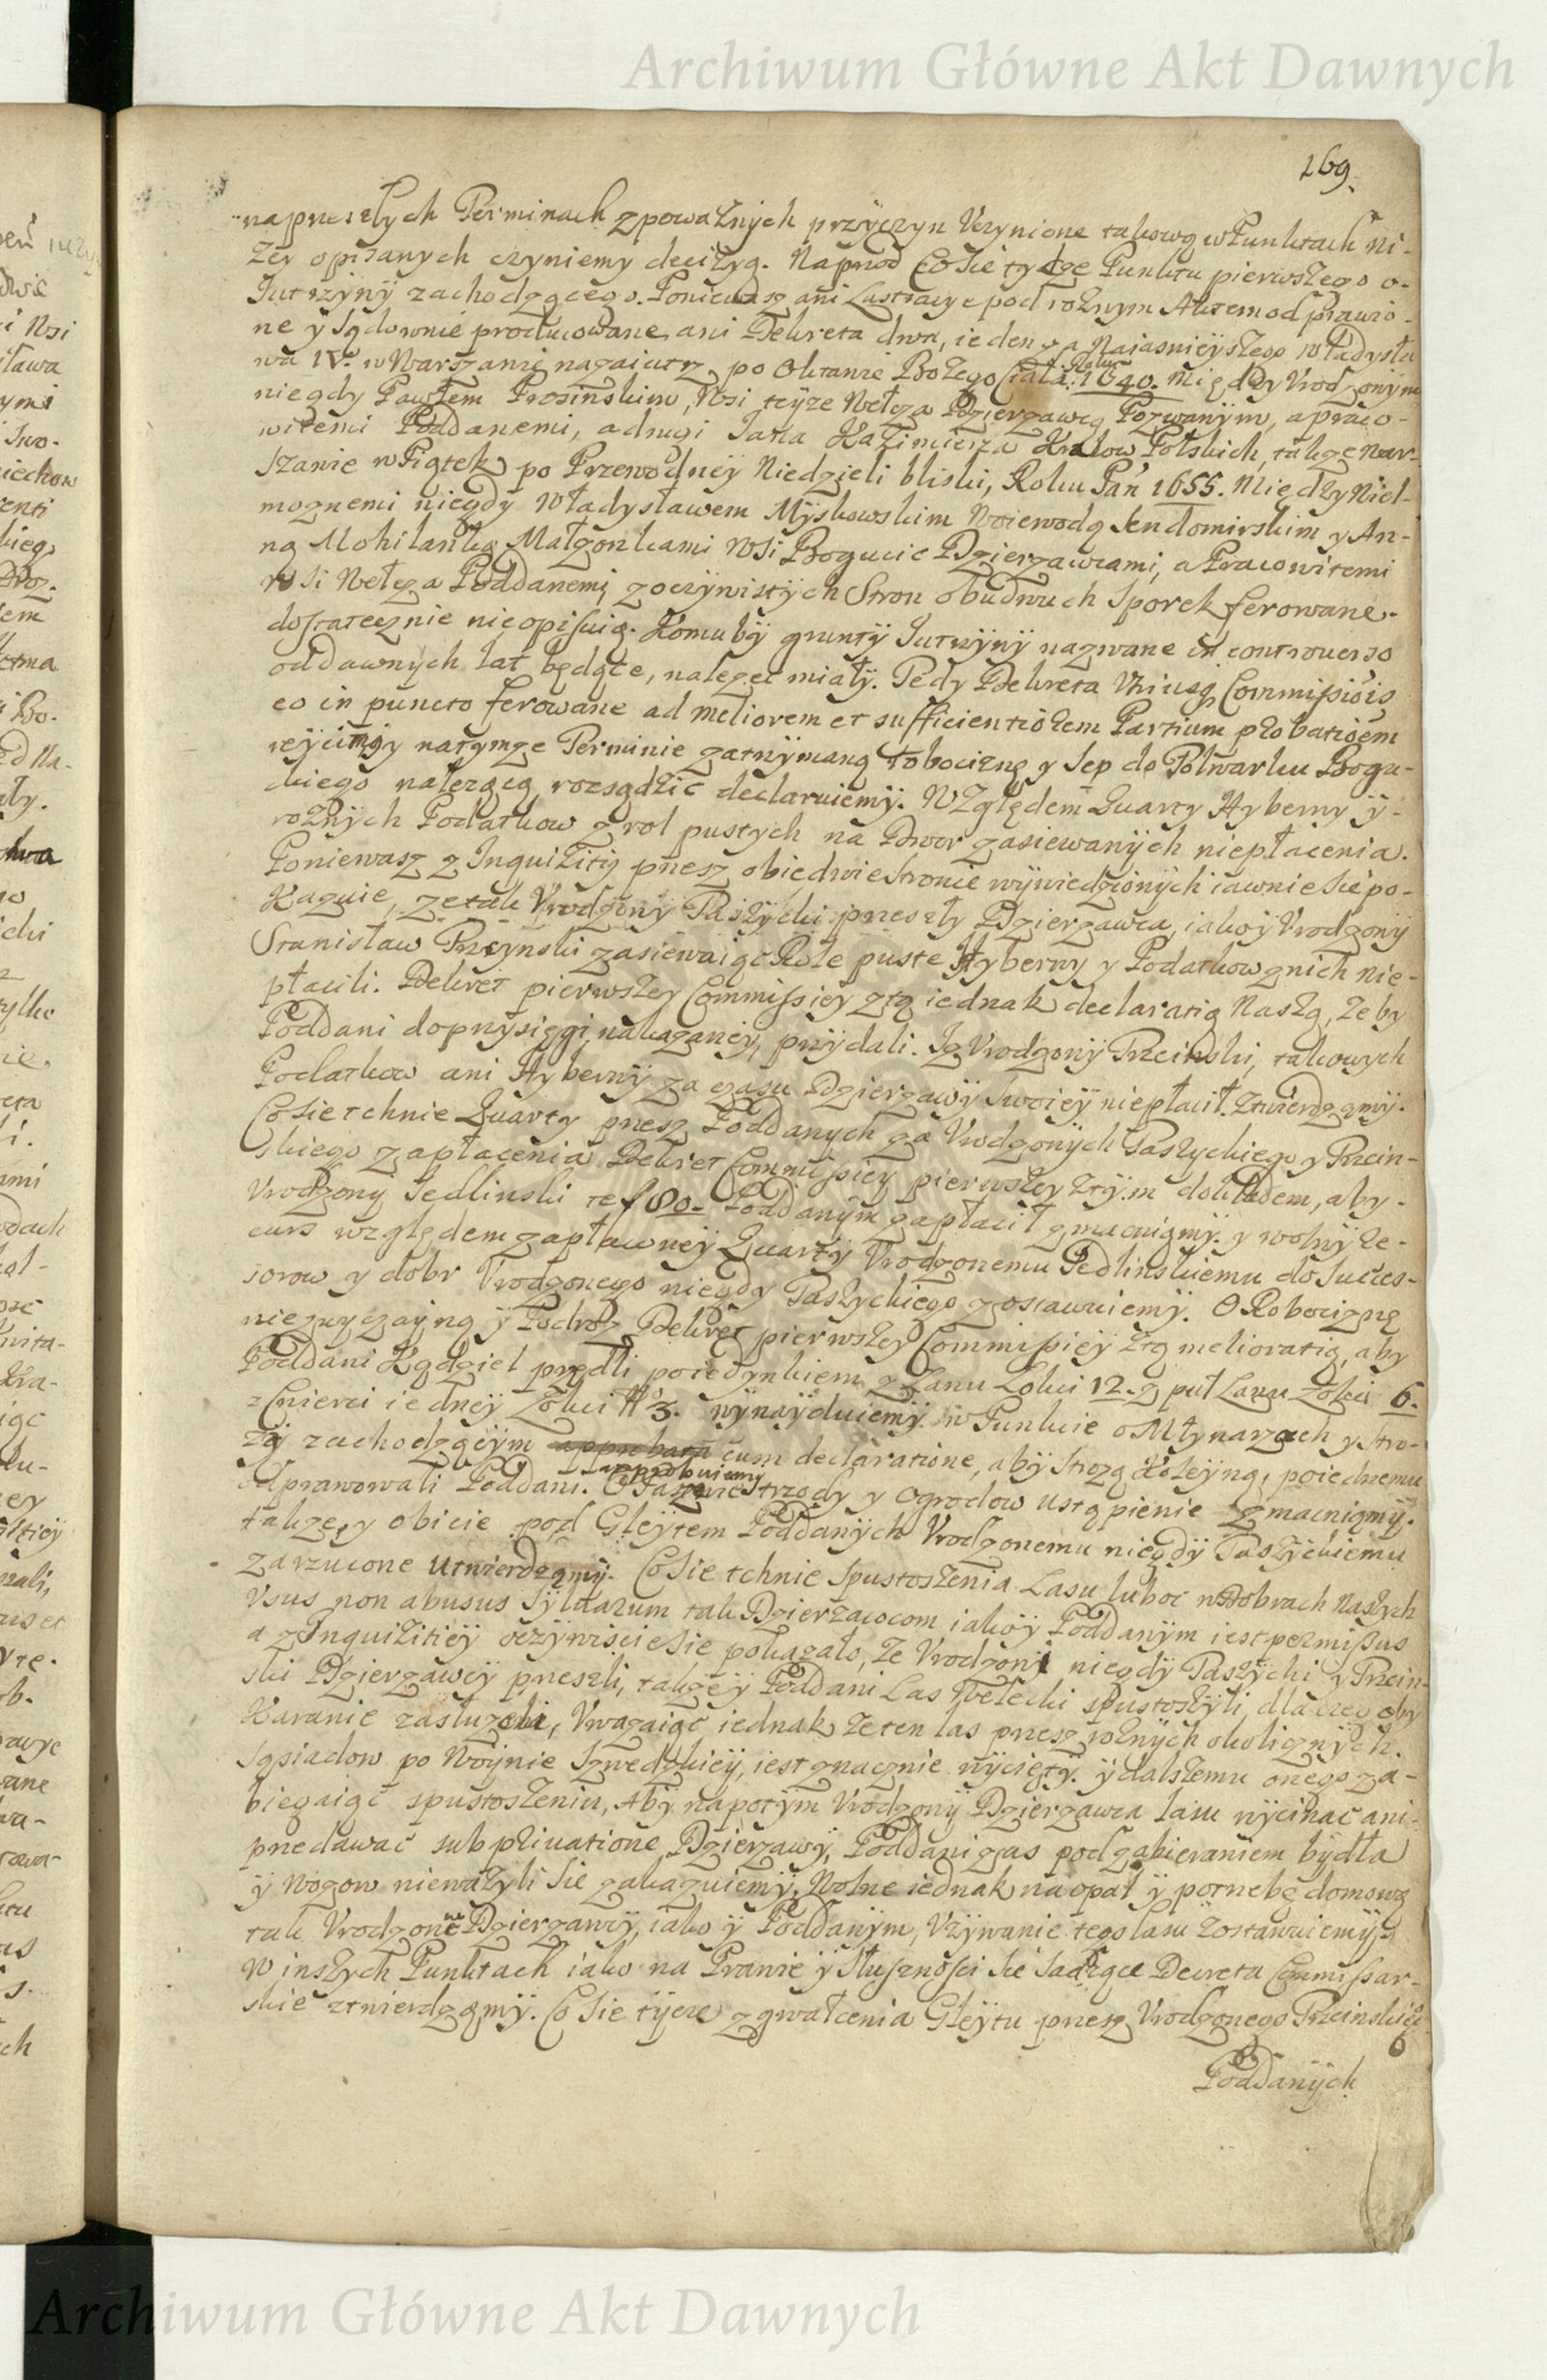 Archiwum Główne Akt Dawnych
169.
na przeszłych Terminach z poważnych przyczyn Uczynione takową w Punktach ni-
żey opisanych czyniemy decizyą. Naprzod Co sie tycze Punktu pierwszego o-
Jutrzyny zachodzącego. Poniewasz ani Lustracye pod rożnym Aktem odprawio-
ne y sądownie producowane ani Dekreta dwa, ieden za Naiasnieyszego Władysła
wa IV. w Warszawie nazaiutrz po Oktawie Bożego Ciała Roku 1640. Między Vrodzonym
niegdy Pawłem Prosinskim, Wsi teyże Wełcza Dzierzawcą Pozwanym, a praco-
witemi Poddanemi, a drugi Jana Kazimierza Krolow Polskich, takze w War-
szawie w Piątek po Przewodney Niedzieli bliski, Roku Pań 1655. Między Wiel-
moznemi niegdy Władysławem Myszkowskim Woiewodą Sendomirskim y An-
ną Mohilanką Małzonkami Wsi Bogucic Dzierzawcami, a Pracowitemi
Wsi Wełcza Poddanemi z oczywistych Stron obudwuch Sporek ferowane-
dostatecznie nie opisuią. Komu by grunty Jutrzyny nazwane in controuerso
od dawnych lat będące, nalezeć miały. Tedy Dekreta Vtriusq Commissiois
eo in puncto ferowane ad meliorem et sufficientiorem Partium probatioem
reycimy y na tymze Terminie zatrzymaną robociznę y Sep do Folwarku Bogu-
ckiego nalezącą rozsądzić declaruiemy. Względem Quarty Hyberny y-
rożnych Podatkow z rol pustych na Dwor zasiewanych niepłacenia.
Poniewasz z Inquizitiy przesz obiedwie Stronie wywiedzionych iawnie sie po-
Kazuie, ze tak Vrodzony Paszycki przeszły Dzierzawca, iako y Vrodzony
Stanisław Trzcynski zasiewaiąc Role puste Hyberny y Podatkow z nich nie-
płacili. Dekret pierwszey Commissiey z tą iednak declaratią Naszą, ze by
Poddani do przysięgi nakazaney, przydali. Iz Vrodzony Trzcinski, takowych
Podatkow ani Hyberny za czasu Dzierzawy swoiey niepłacił. Ztwierdzamy.
Co sie tchnie Quarty przesz Poddanych za Vrodzonych Paszyckiego y Trzcin-
skiego zapłacenia Dekret Commissiey pierwszey z tym dokładem, aby-
Vrodzony Jedlinski te f 80.- Poddanym zapłacił zmacniamy. y wolny Re-
curs względem zapławney Quarty Vrodzonemu Jedlinskiemu do Succes-
sorow y dobr Vrodzonego niegdy Paszyckiego zostawuiemy. O Robociznę
niezwyczayną y Podroz Dekret pierwszey Commissiey z tą melioratią, aby
Poddani Kądziel przędli poiedynkiem z Łanu Łokci 12. z puł Łanu Łokci 6.
z Cwierci iedney Łokci Nº 3. wynayduiemy. w Punkcie o Młynarzach y stro-
ży zachodzącym approbata cum declaratione, aby strozą Koleyną, poiednemu
approbuiemy
odprawowali Poddani. O Paszenie Trzody y Ogrodow ustąpienie zmacniamy.
takze, y obicie pod Gleytem Poddanych Vrodzonemu niegdy Paszyckiemu
zarzucone utwierdzamy. Co sie tchnie Spustoszenia Lasu luboc w Dobrach Naszych
Vsus non abusus Syluarum tak Dzierzawcom iako y Poddanym iest permissus
a z Inquizitiey oczywiscie sie pokazało, ze Vrodzony niegdy Paszycki y Trzcin-
ski Dzierzawcy przeszli, takze y Poddani Las Wełecki spustoszyli, dla czego by
Karanie zasłuzyli, Vwazaiąc iednak ze ten las przesz roznych okolicznych
Sąsiadow po Woynie Szwedzkiey, iest znacznie wycięty. y dalszemu onego za-
biegaiąc spustoszeniu, Aby na potym Vrodzony Dzierzawca lasu wycinać ani-
przedawać sub priuatione Dzierzawy, Poddani zas pod zabieraniem bydła
y Wozow nieważyli sie zakazuiemy. Wolne iednak na opał y potrzebę domową
tak Vrodzonemu Dzierzawcy, iako y Poddanym, Vżywanie tego lasu zostawuiemy.
W inszych Punktach iako na Prawie y Słuszności sie sadzące Decreta Commissar-
skie ztwierdzamy. Co sie tycze zgwałcenia Gleytu przesz Vrodzonego Trzcinskieg
o
Poddanych
Archiwum Główne Akt Dawnych